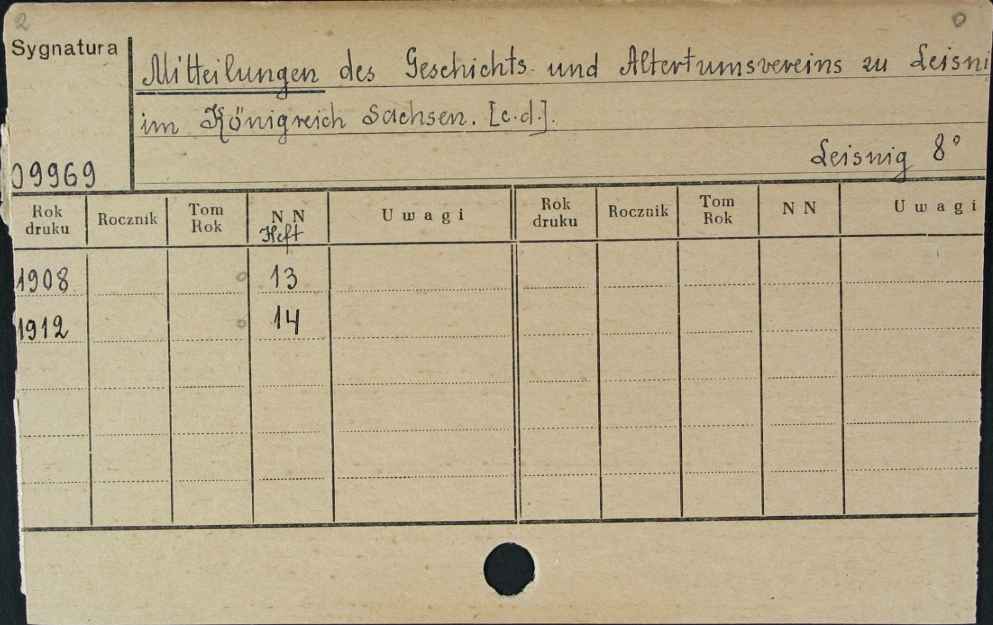 2 0
Sygnatura
Mitteilungen des Geschichts- und Altertumsvereins zu Leisni
im Königreich Sachsen. [c.d.].
Leisnig 8°
09969
Rok druku Rocznik Tom Rok N N Heft Uwagi Rok druku Rocznik Tom Rok N N Uwagi
1908 o 13
1912 o 14